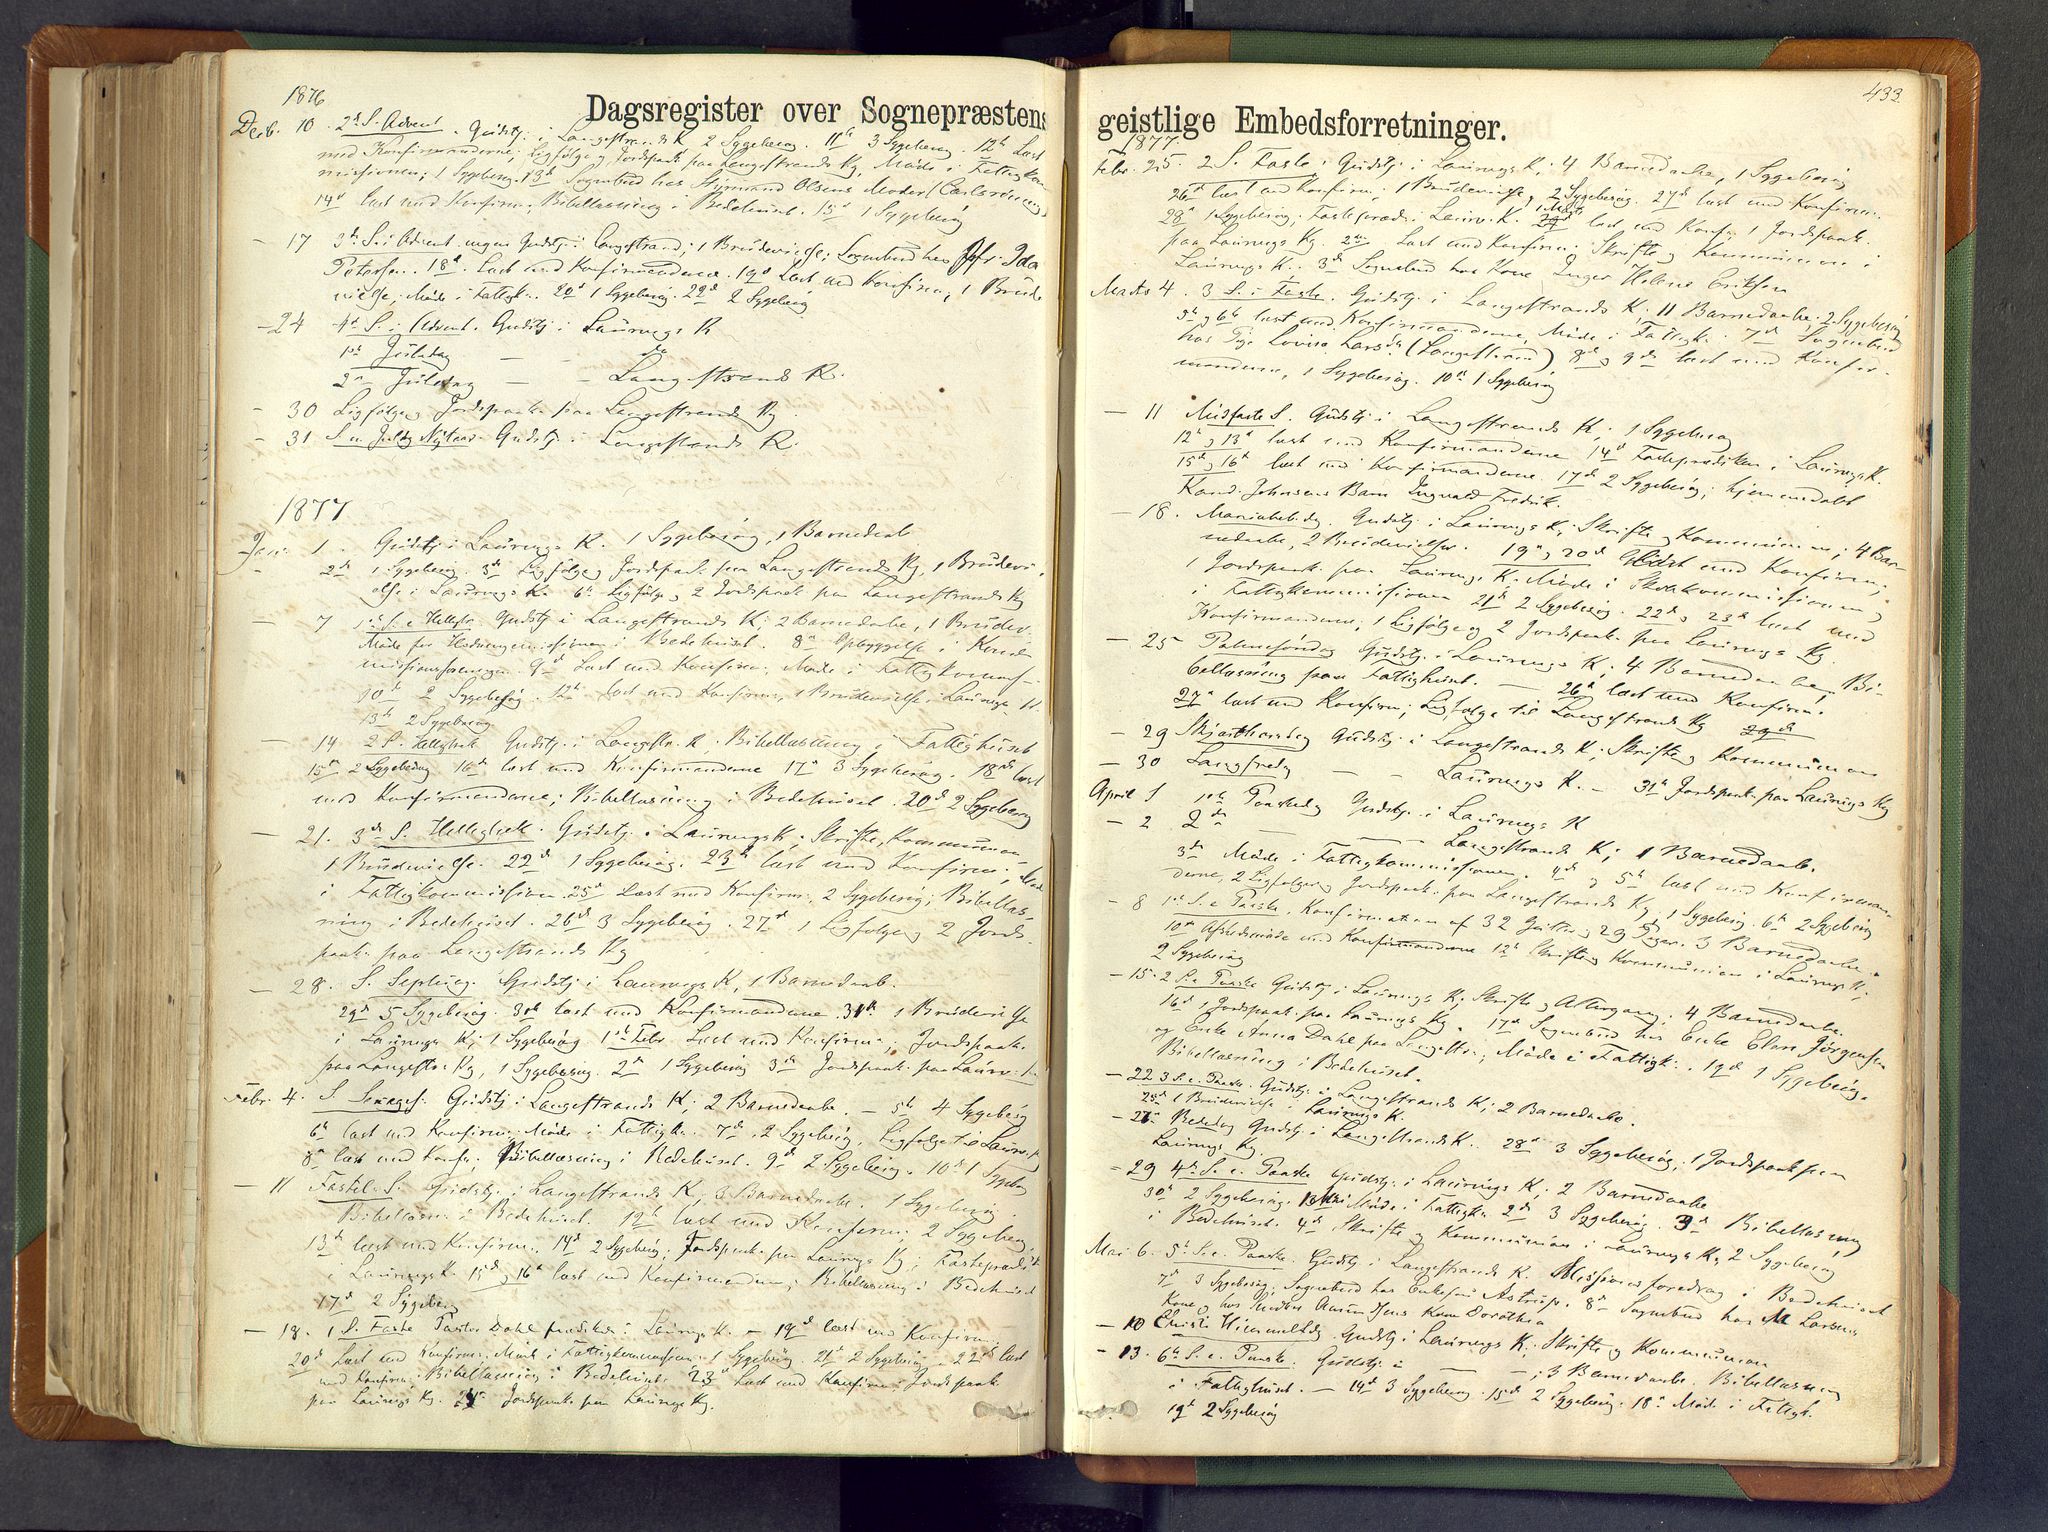 1876
Dagsregister over Sognepræstens
Decb. 10 2d S. i Advent. Gudstj. i Langestrands K 2 Sygebesøg. 11te 3 Sygebesøg. 12te Læst
med Konfirmanderne; Ligfølge og Jordspaak. paa Langestrands Kg, Møde i Fattigkom-
missionen; 1 Sygebesøg. 13de Sognebud hos Styrmand Olsens Moder
14d læst med Konfirm; Bibellæsning i Bedehuset. 15d 1 Sygebesøg
- 17 3d S. i Advent ingen Gudstj. i Langestrand; 1 Brudevielse; Sognebud hos Jfr. Ida
Petersen. 18d Læst med Konfirmanderne. 19d Læst med Konfirm; 1 Brude-
vielse; Møde i Fattigk. 20d 1 Sygebesøg. 22d 2 Sygebesøg
- 24 4d S. i Advent. Gudstj. i Laurvigs K
1ste Juledag — do
2den Juledag — - Langestrands K.
- 30 Ligfølge og Jordspaak. paa Langestrands Kg.
- 31 S. m. Jul og Nytaar. Gudstj. i Langestrands K.
1877
Jan. 1. Gudstj. i Laurvigs K. 1 Sygebesøg, 1 Barnedaab
2den 1 Sygebesøg. 3de Ligfølge og Jordspaak. paa Langestrands Kg, 1 Brudevi-
else i Laurvigs K. 6te Ligfølge og 2 Jordspaak. paa Langestrands Kg
- 7 1ste S. e. Helligtr. Gudstj. i Langestrands K; 2 Barnedaabe, 1 Brudev.
Møde for Hedningemissionen i Bedehuset. 8de Opbyggelse i Kvinde-
missionsforeningen. 9d Læst med Konfirm; Møde i Fattigkomm.
10de 2 Sygebesøg. 12te læst med Konfirm, 1 Brudevielse i Laurvigs K.
13de 2 Sygebesøg
- 14 2 S. Helligtrek. Gudstj. i Langestr. K; Bibellæsning i Fattighuset
15d 2 Sygebesøg 16d læst med Konfirmanderne 17d 3 Sygebesøg. 18de læst
med Konfirmanderne; Bibellæsning i Bedehuset. 20d 2 Sygebesøg
- 21. 3d S. Helligtrek. Gudstj. i Laurvigs K; Skrifte, Kommunion,
1 Brudevielse. 22d 1 Sygebesøg. 23de læst med Konfirm; Møde
i Fattigkommissionen 25d Læst med Konfirm; 2 Sygebesøg; Bibellæs-
ning i Bedehuset. 26d 3 Sygebesøg. 27d 1 Ligfølge og 2 Jords-
paak. paa Langestrands Kg
- 28. S. Septuag. Gudstj. i Laurvigs K, 1 Barnedaab.
29d 5 Sygebesøg. 30te læst med Konfirmanderne. 31te 1 Brudevielse
i Laurvigs K; 1 Sygebesøg 1ste Febr. Læst med Konfirm; Jordspaak.
paa Langestr. Kg, 1 Sygebesøg. 2d 1 Sygebesøg 3de Jordspaak. paa Laurv.
Febr. 4. S. Sexages. Gudstj. i Langestrands K; 2 Barnedaabe. — 5te 4 Sygebesøg
6te læst med Konfirm; Møde i Fattigk. 7d 2 Sygebesøg, Ligfølge til Laurv.
8de læst med Konfir; Bibellæsning i Bedehuset. 9d 2 Sygebesøg. 10d 1 Sygebes.
- 11 Fastel. S. Gudstj. i Langestrands K; 3 Barnedaabe. 1 Sygebesøg.
Bibellæsn. i Bedehuset. 12te læst med Konfirm. 2 Sygebesøg
13d læst med Konfirm. 14d 2 Sygebesøg; Jordspaak. paa Laurvigs Kg; Fasteprædik.
i Laurvigs K. 15d og 16d læst med Konfirmandern; Bibellæsning i Bedehuset
17d 2 Sygebesøg
- 18. 1 S. Faste Pastor Dahl prædiked i Laurvigs K. — 19d læst med Konfirm.
20d Læst med Konfirm. Møde i Fattigkommissionen; 1 Sygebesøg. 21d 2 Sygebesøg. 22d læst
med Konfirm; Bibellæsning i Bedehuset. 23d Læst med Konfirm; Jordspaak
paa Laurvigs Kg. 24d Jordspaak. paa Laurvigs Kg.
433.
geistlige Embedsforretninger.
1877.
Febr. 25. 2 S. Faste. Gudstj. i Laurvigs K; 4 Barnedaabe, 1 Sygebesøg
26d læst med Konfirm; 1 Brudevielse og 2 Sygebesøg. 27d læst med Konfirm.
28d 1 Sygebesøg; Fasteprædik. i Laurv. K. 1 Marts læst med Konfir; 1 Jordspaak.
paa Laurvigs Kg 2den Læst med Konfirm. Skrifte og Kommunion i
Laurvigs K. 3d Sognebud hos Kone Inger Helene Eriksen
Marts 4. 3 S. i Faste. Gudstj. i Langestrands K; 11 Barnedaabe, 2 Sygebesøg
5te og 6te læst med Konfirmanderne, Møde i Fattigk. 7d Sognebud
hos Pige Lovise Larsdr. (Langestrand) 8d og 9de læst med Konfir-
manderne, 1 Sygebesøg. 10de 1 Sygebesøg
- 11 Midfaste S. Gudstj. i Langestrands K; 1 Sygebesøg
12te og 13d læst med Konfirmanderne 14d Fasteprædiken i Laurvigs K.
15d og 16d læst med Konfirmanderne. 17d 2 Sygebesøg; hjemmedøbt
Kand. Johnsens Barn Ingvald Fredrik.
- 18. Mariæbeb. dag. Gudstj. i Laurvigs K; Skrifte og Kommunion; 4 Bar-
nedaabe, 2 Brudevielser. 19d og 20d Læst med Konfirm;
1 Jordspaak. paa Laurvigs K. Møde i Skolekommissionen og
i Fattigkommissionen 21d 2 Sygebesøg. 22d og 23d læst med
Konfirmanderne; 1 Ligfølge og 2 Jordspaak. paa Laurvigs Kg.
- 25 Palmesøndag Gudstj. i Laurvigs K; 4 Barnedaabe, Bi-
bellæsning paa Fattighuset. — 26d læst med Konfirm.
27d læst med Konfirm; Ligfølge til Langestrands Kg 29de
- 29 Skjærthorsdag Gudstj. i Langestrands K; Skrifte og Kommunion
- 30 Langfredag — — Laurvigs K. — 31te Jordspaak. paa Laurvigs Kg
April 1 1ste Paaskedag Gudstj. i Laurvigs K
- 2 2den — — Langestrands K; 1 Barnedaab.
3de Møde i Fattigkommissionen. 4d og 5te læst med Konfirman-
derne, 2 Ligfølge og Jordspaak. paa Langestrands Kg, 1 Sygebesøg. 6te 2 Sygebesøg
- 8 1ste S. e. Paaske. Konfirmation af 32 Gutter og 29 Piger. 3 Barnedaabe.
10de Afskedsmøde med Konfirmanderne 12te Skrifte og Kommunion i Laurvigs K;
2 Sygebesøg
- 15. 2 S. e. Paaske Gudstj. i Laurvigs K; Skrifte og Altergang; 4 Barnedaabe.
16d 1 Jordspaak. paa Laurvigs Kg. 17d Sognebud hos Enke Elen Jørgensen
og Enke Anna Dahl paa Langestr.; Møde i Fattigk. 19d 1 Sygebesøg.
Bibellæsning i Bedehuset.
- 22 3 S. e. Paaske. Gudstj. i Langestrands K; 2 Barnedaabe.
25d 1 Brudevielse i Laurvigs K.
- 27. Bededag Gudstj. i Langestrands K. 28d 3 Sygebesøg; 1 Jordspaak paa
Laurvigs Kg.
- 29 4de S. e. Paaske Gudstj. i Laurvigs K; 2 Barnedaabe
30d 2 Sygebesøg. 1 Mai Møde i Fattigk. 2d 3 Sygebesøg. 3d Bibellæsning
i Bedehuset. 4d Skrifte og Kommunion i Laurvigs K; 2 Sygebesøg
Mai 6. 5te S. e. Paaske. Gudstj. i Langestrands K. Missionsforedrag i Bedehuset
7d 3 Sygebesøg, Sognebud hos Enkefru Astrup. 8de Sognebud hos M Larsens
Kone og hos Snedker Amund Jens Kone Dorothea
- 10 Christi Himmelfdg. Gudstj. i Laurvigs K; Skrifte og Kommunion
- 13. 6te S. e. Paaske. Gudstj. i — — ; 3 Barnedaabe. Bibellæsning
i Fattighuset. — 14d 3 Sygebesøg. 15d 2 Sygebesøg. 18de Møde i Fattigk.
19d 2 Sygebesøg